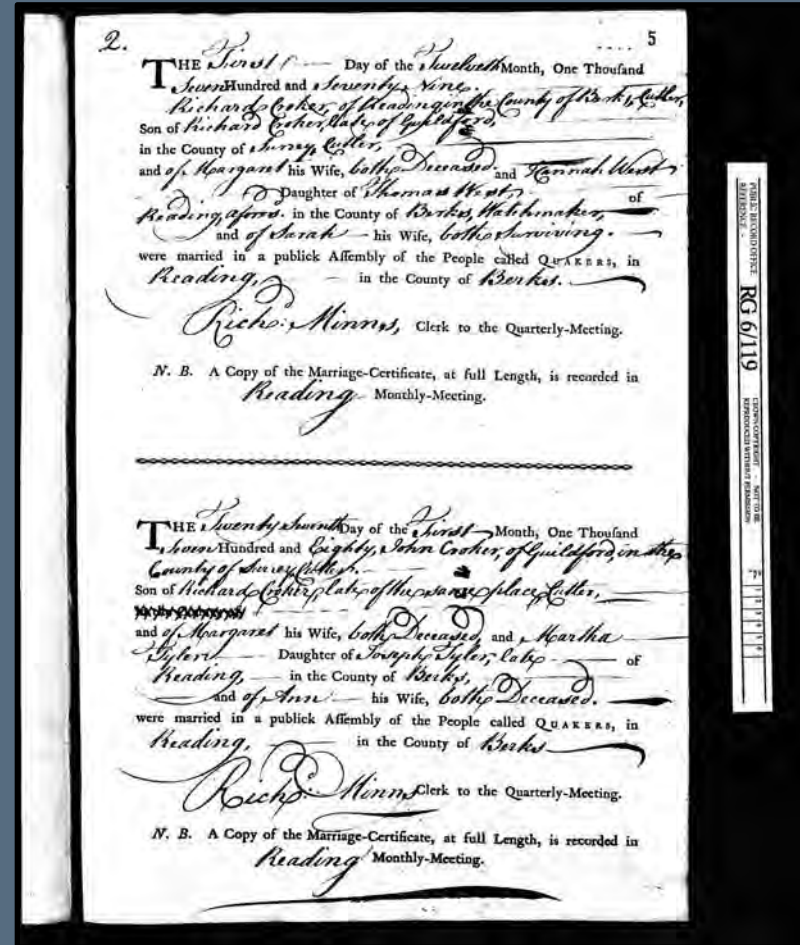 2.
5
THE First Day of the Twelveth Month, One Thousand
Seven Hundred and Seventy Nine.
Richard Croker, of Reading in the County of Berks, Cutler,
Son of Richard Croker, late of Guildford,
in the County of Surrey, Cutler,
and of Margaret his Wife, both Deceased, and Hannah West
Daughter of Thomas West, of
Reading, afores. in the County of Berks, Watchmaker,
and of Sarah his Wife, both Surviving.
were married in a publick Assembly of the People called QUAKERS, in
Reading, in the County of Berks.
Rich: Minns, Clerk to the Quarterly-Meeting.
N. B. A Copy of the Marriage-Certificate, at full Length, is recorded in
Reading Monthly-Meeting.
THE Twenty Seventh Day of the First Month, One Thousand
Seven Hundred and Eighty, John Croker, of Guildford, in the
County of Surrey, Cutler.
Son of Richard Croker, late of the same place, Cutler,
and of Margaret his Wife, both Deceased, and Martha
Tyler Daughter of Joseph Tyler, late of
Reading, in the County of Berks,
and of Ann his Wife, both Deceased.
were married in a publick Assembly of the People called QUAKERS, in
Reading, in the County of Berks
Rich: Minns Clerk to the Quarterly-Meeting.
N. B. A Copy of the Marriage-Certificate, at full Length, is recorded in
Reading Monthly-Meeting.
PUBLIC RECORD OFFICE
REFERENCE -
RG 6/119
CROWN COPYRIGHT - NOT TO BE
REPRODUCED WITHOUT PERMISSION